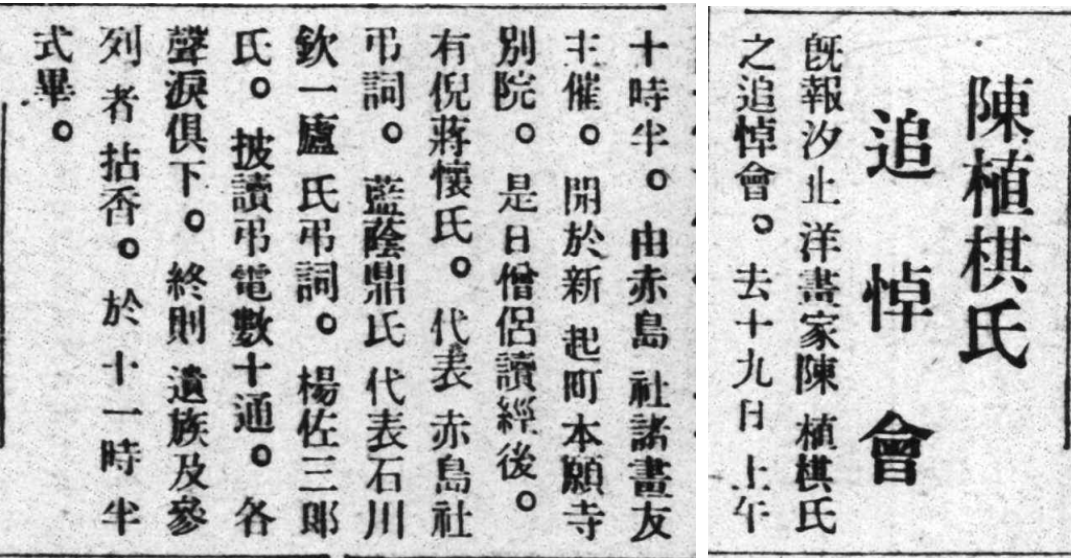 陳植棋氏
追悼會
既報汐止洋畫家陳植棋氏
之追悼會。去十九日上午
十時半。由赤島社諸畫友
主催。開於新起町本願寺
別院。是日僧侶讀經後。
有倪蔣懷氏。代表赤島社
弔詞。藍蔭鼎氏代表石川
欽一廬氏弔詞。楊佐三郎
氏。披讀弔電數十通。各
聲淚俱下。終則遺族及參
列者拈香。於十一時半
式畢。